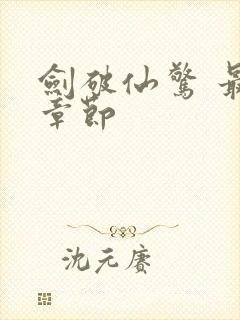 劍破仙驚 最
章節
沈元賡